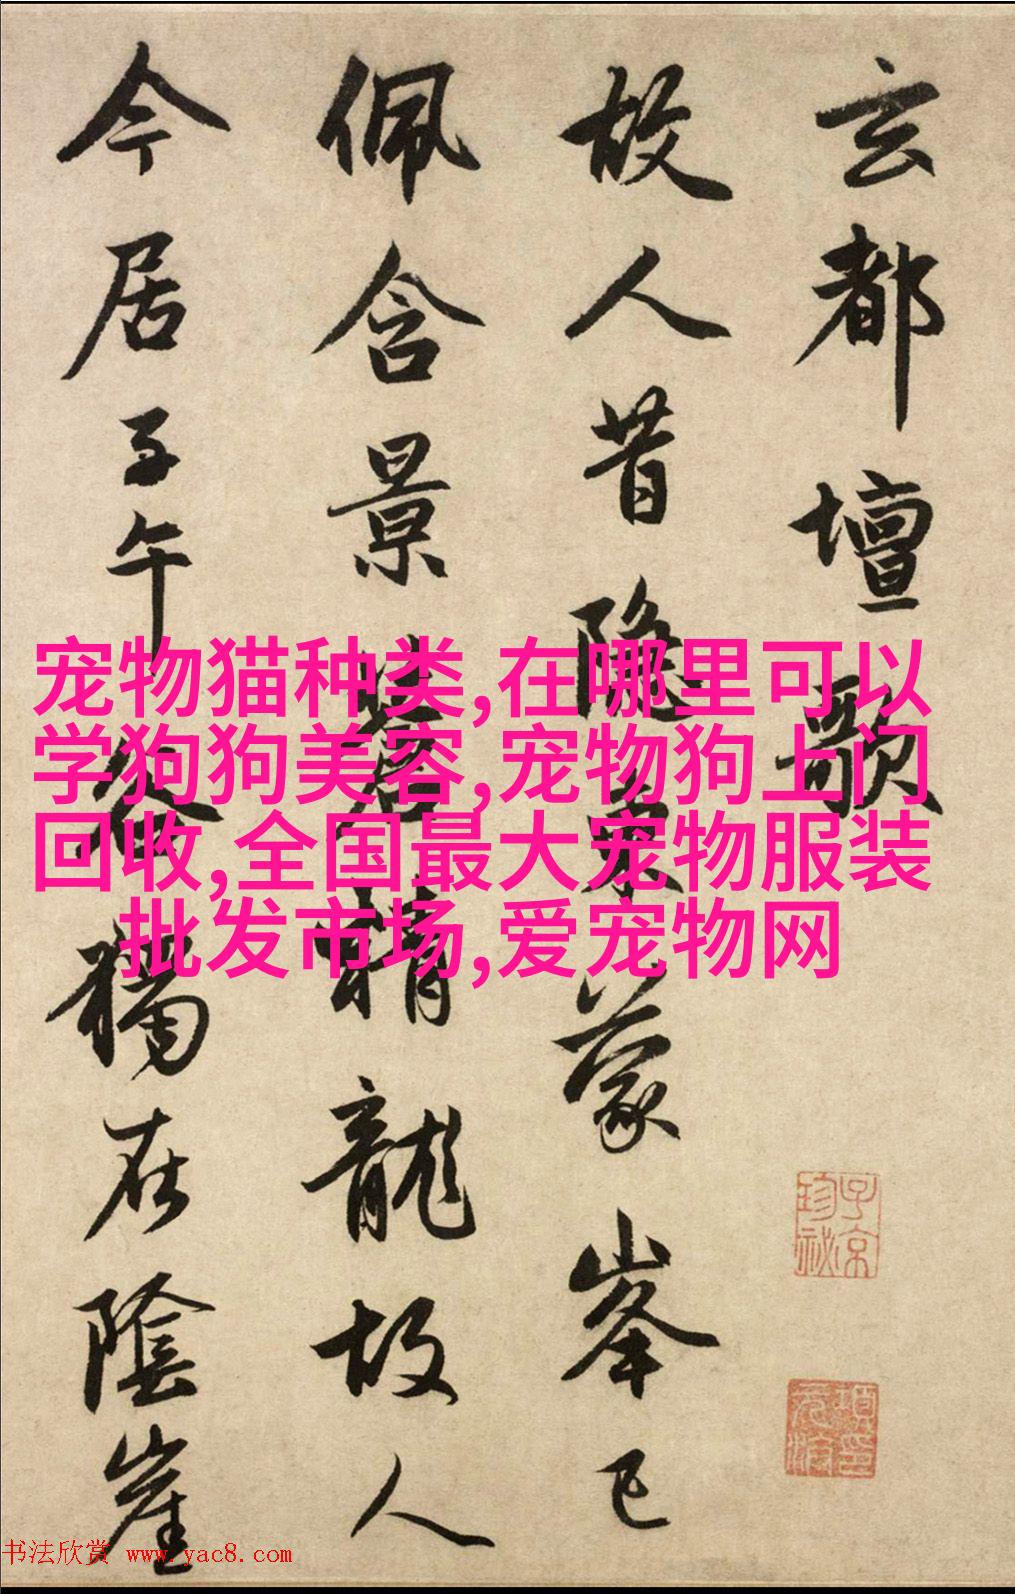 玄都壇歌
故人昔隱東蒙峯已
佩含景蒼精龍故人
今居子午谷獨在陰崖
宠物猫种类,在哪里可以
学狗狗美容,宠物狗上门
回收,全国最大宠物服装
批发市场,爱宠物网
子京
珍祕
项元汴印
书法欣赏 www.yac8.com